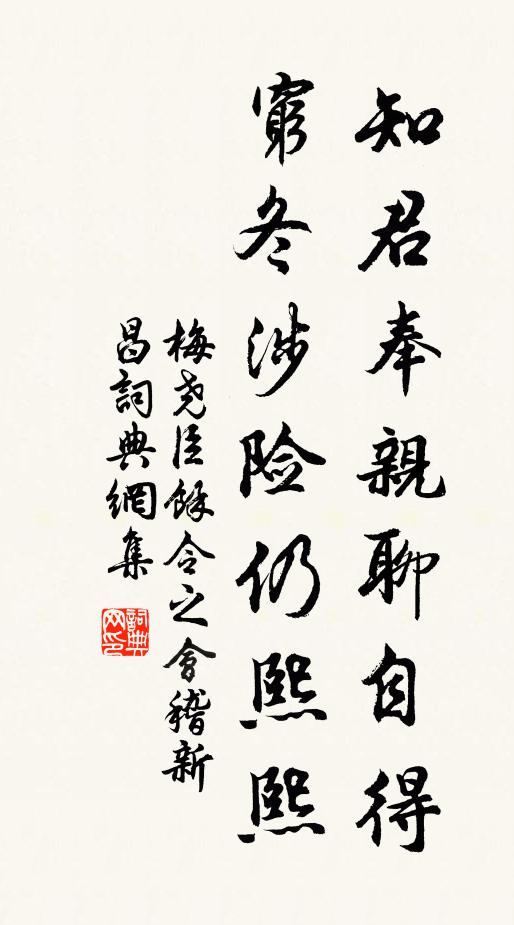 知君奉親聊自得
窮冬涉險仍熙熙
梅尧臣餘令之會稽新
昌詞典網集
詞典網印